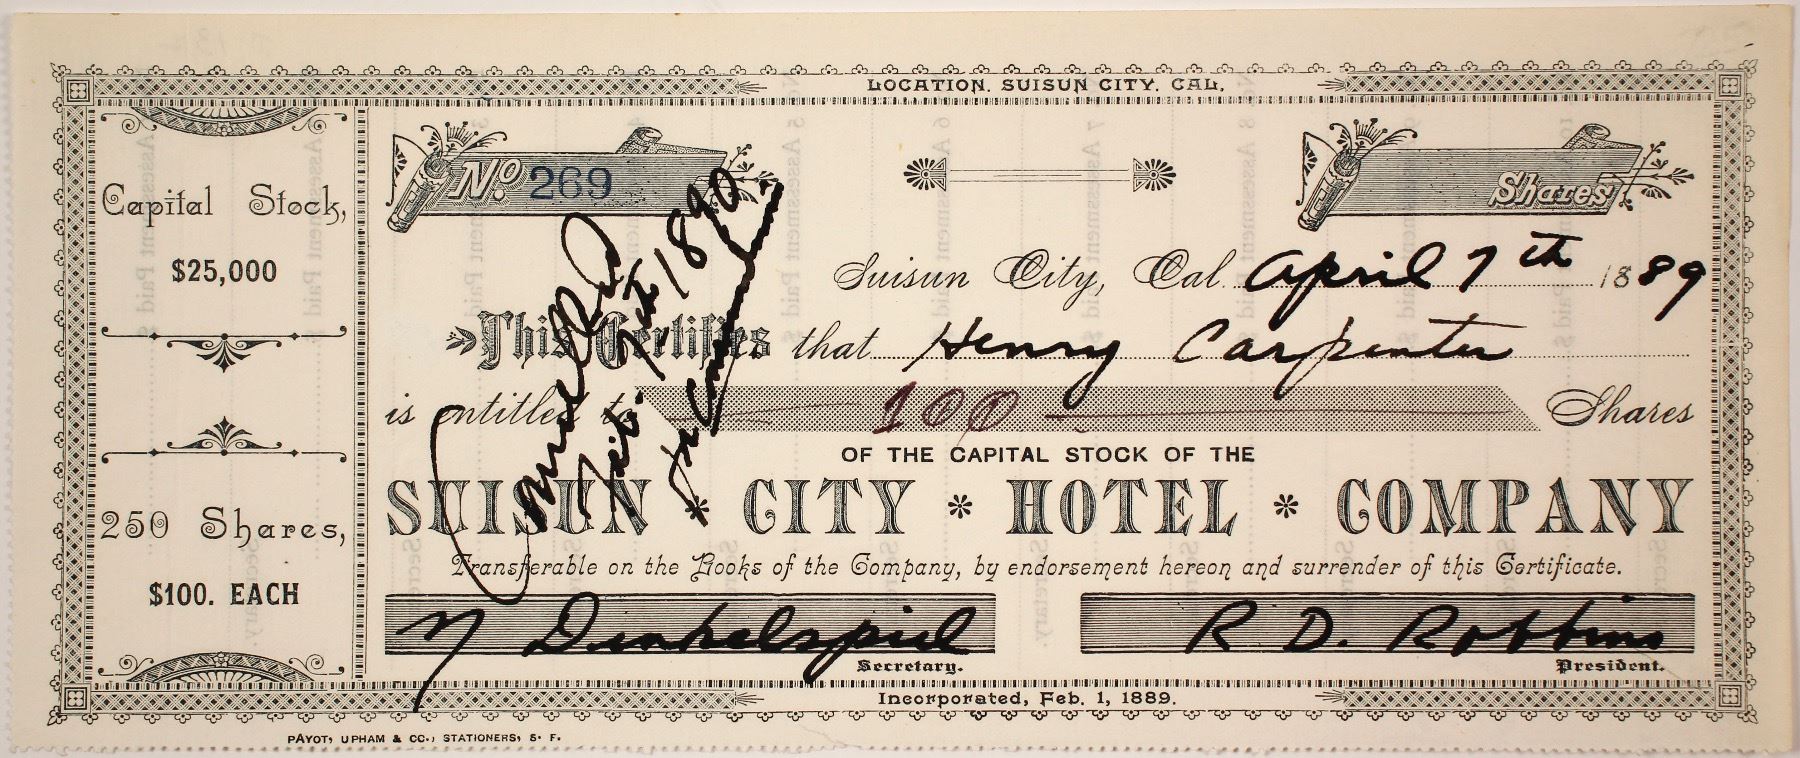 LOCATION. SUISUN CITY. CAL.
Capital Stock,
$25,000
250 Shares,
$100. EACH
No. 269
Shares
Suisun City, Cal. April 7th 1889
This Certifies that Henry Carpenter
is entitled to 100 Shares
OF THE CAPITAL STOCK OF THE
SUISUN * CITY * HOTEL * COMPANY
Transferable on the Books of the Company, by endorsement hereon and surrender of this Certificate.
N Dinkelspiel
Secretary.
R D. Robbins
President.
Incorporated, Feb. 1, 1889.
PAYOT, UPHAM & CO., STATIONERS, S. F.
Cancelled
Feb. 1890